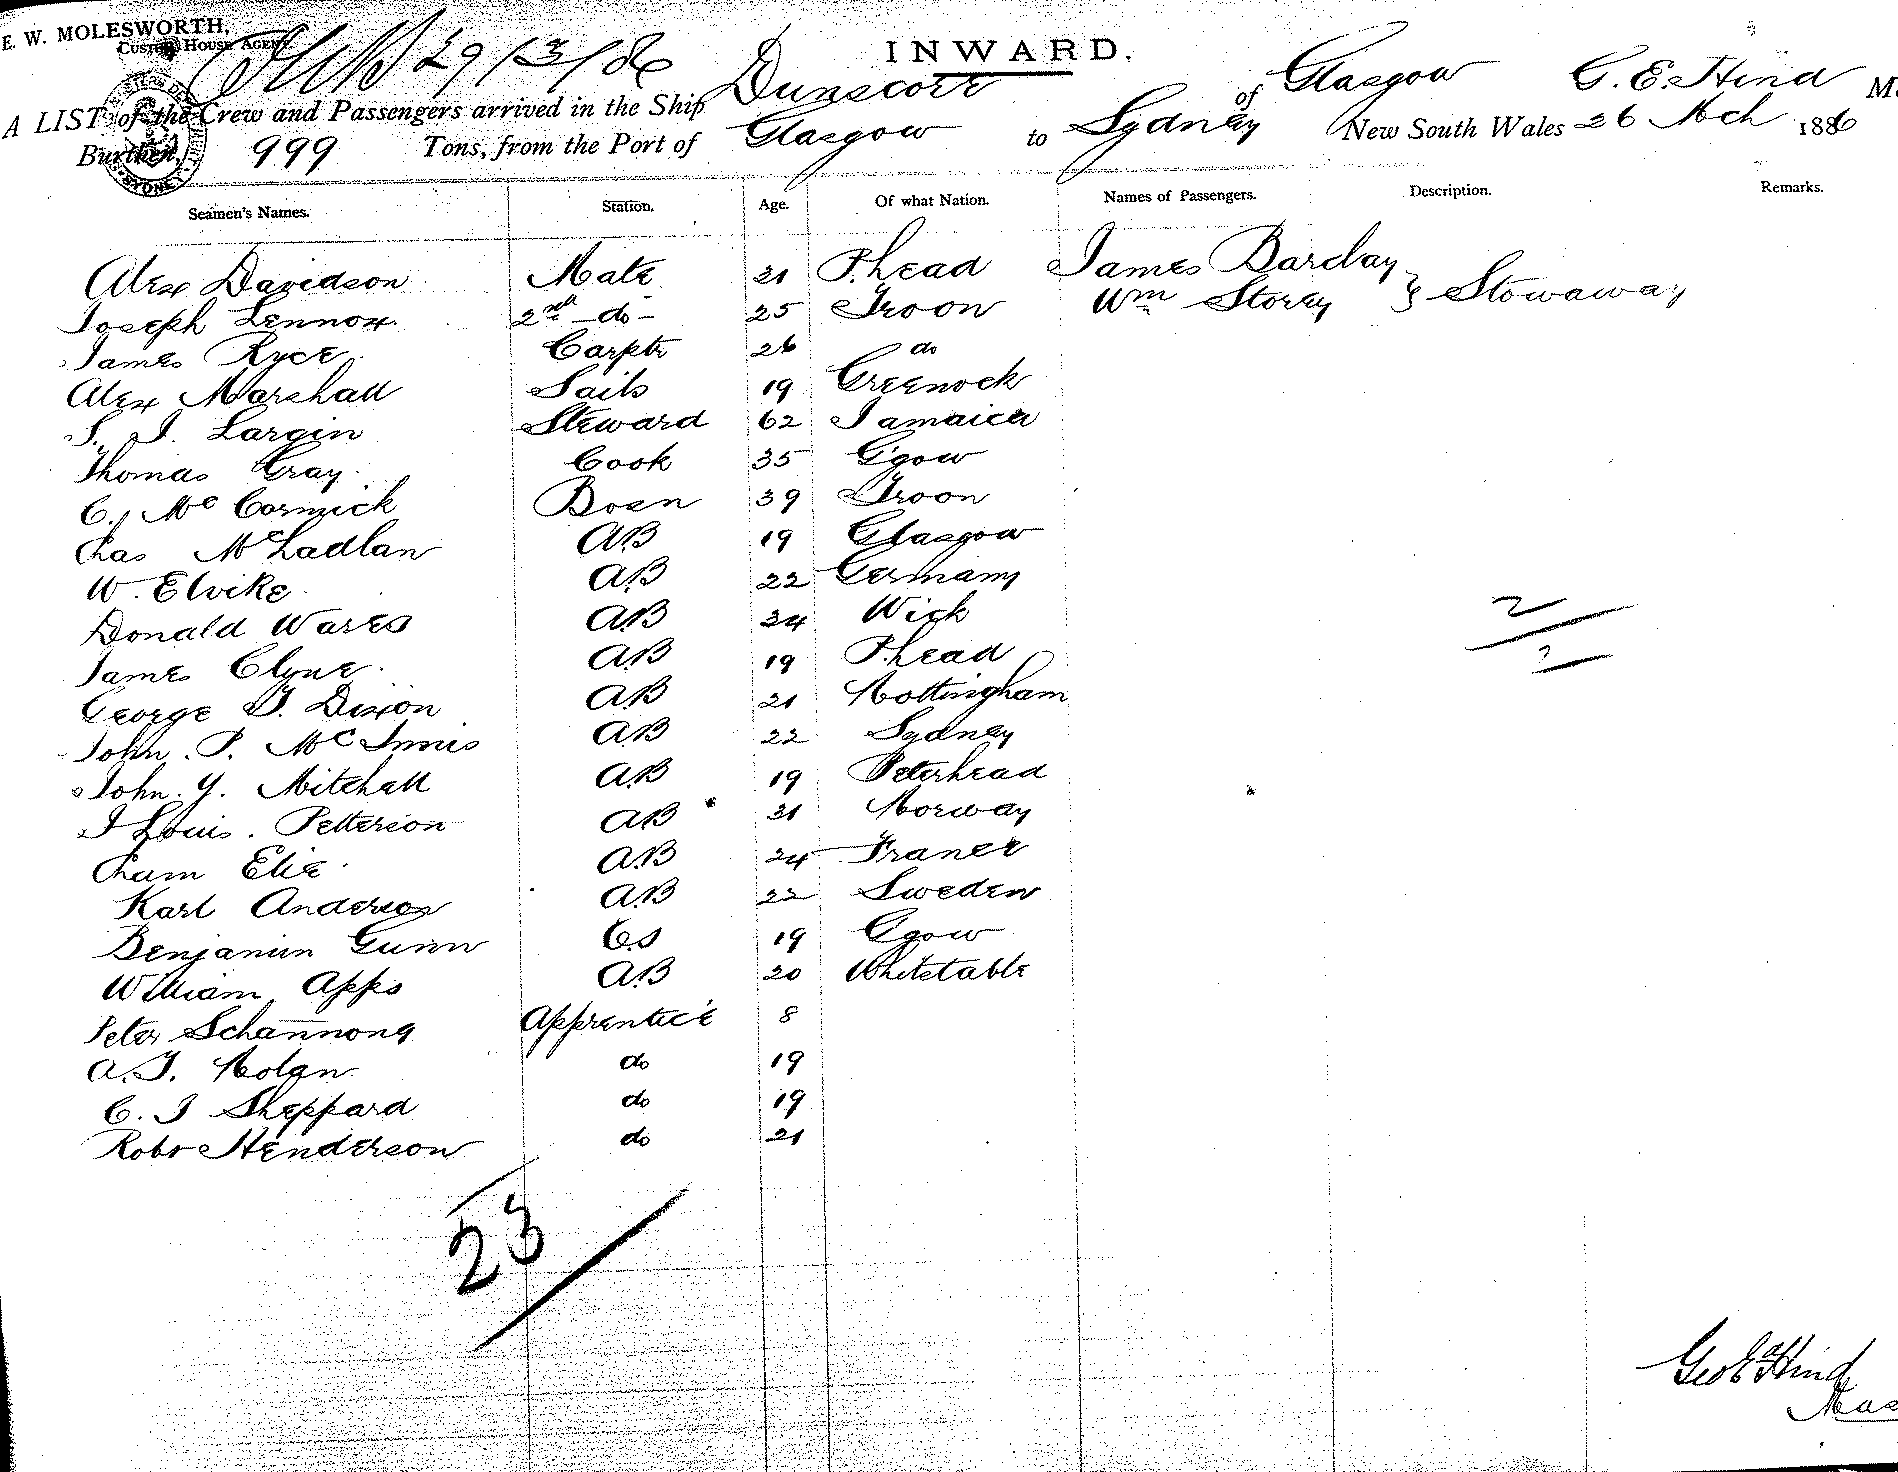 E. W. MOLESWORTH,
CUSTOM HOUSE AGENT
29/3/86
INWARD.
A LIST of the Crew and Passengers arrived in the Ship Dunscore of Glasgow G. E. Hind
Burthen, 999 Tons, from the Port of Glasgow to Sydney New South Wales 26 Mch 1886
Seamen's Names. Station. Age. Of what Nation. Names of Passengers. Description. Remarks.
Alex Davidson Mate 21 P.head James Barclay
Joseph Lennox 2nd -do- 25 Troon Wm Storey } Stowaway
James Ryce Carptr 26 do
Alex Marshall Sails 19 Greenock
S. J. Largin Steward 62 Jamaica
Thomas Gray Cook 35 G'gow
C. McCormick Bosn 39 Troon
Chas McLadlan AB 19 Glasgow
W. Elvike A.B 22 Germany
Donald Wares A.B 24 Wick
James Clyne A.B 19 P.head
George T. Dixon A.B 21 Nottingham
John. P. McInnis A.B 22 Sydney
John. Y. Mitchell A.B 19 Peterhead
J Louis. Petterson A.B 21 Norway
Cham Elie A.B 24 France
Karl Anderson A.B 22 Sweden
Benjamin Gunn 19 Ggow
William Apps A.B 20 Whitstable
Peter Schannong Apprentice 8
A. J. do 19
C. J Sheppard do 19
Robt Henderson do 21
23
2
Geo E Hind